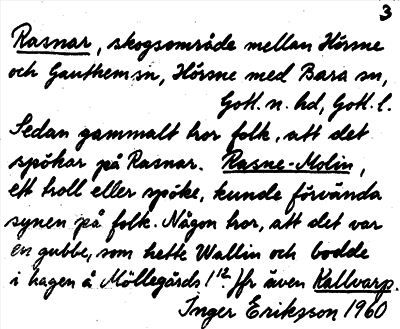 3
Rasnar, skogsområde mellan Hörsne
och Ganthemsn, Hörsne med Bara sn,
Gotl. n. hd, Gotl. l.
Sedan gammalt tror folk, att det
spökar på Rasnar. Rasne-Molin,
ett troll eller spöke, kunde förvända
synen på folk. Någon tror, att det var
en gubbe, som hette Wallin och bodde
i hagen å Möllegårds 1¹². Jfr även Kallvarp.
Inger Eriksson 1960